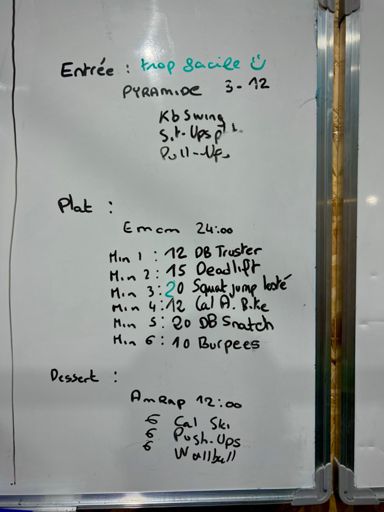 Entrée : trop facile
PYRAMIDE 3-12
Kb Swing
Sit-Ups
Pull-Up
Plat :
Emom 24:00
Min 1 : 12 DB Truster
Min 2 : 15 Deadlift
Min 3 : 20 Squat jump lesté
Min 4 : 12 Cal A. Bike
Min 5 : 20 DB Snatch
Min 6 : 10 Burpees
Dessert :
AmRap 12:00
6 Cal Ski
6 Push-Ups
6 Wallball